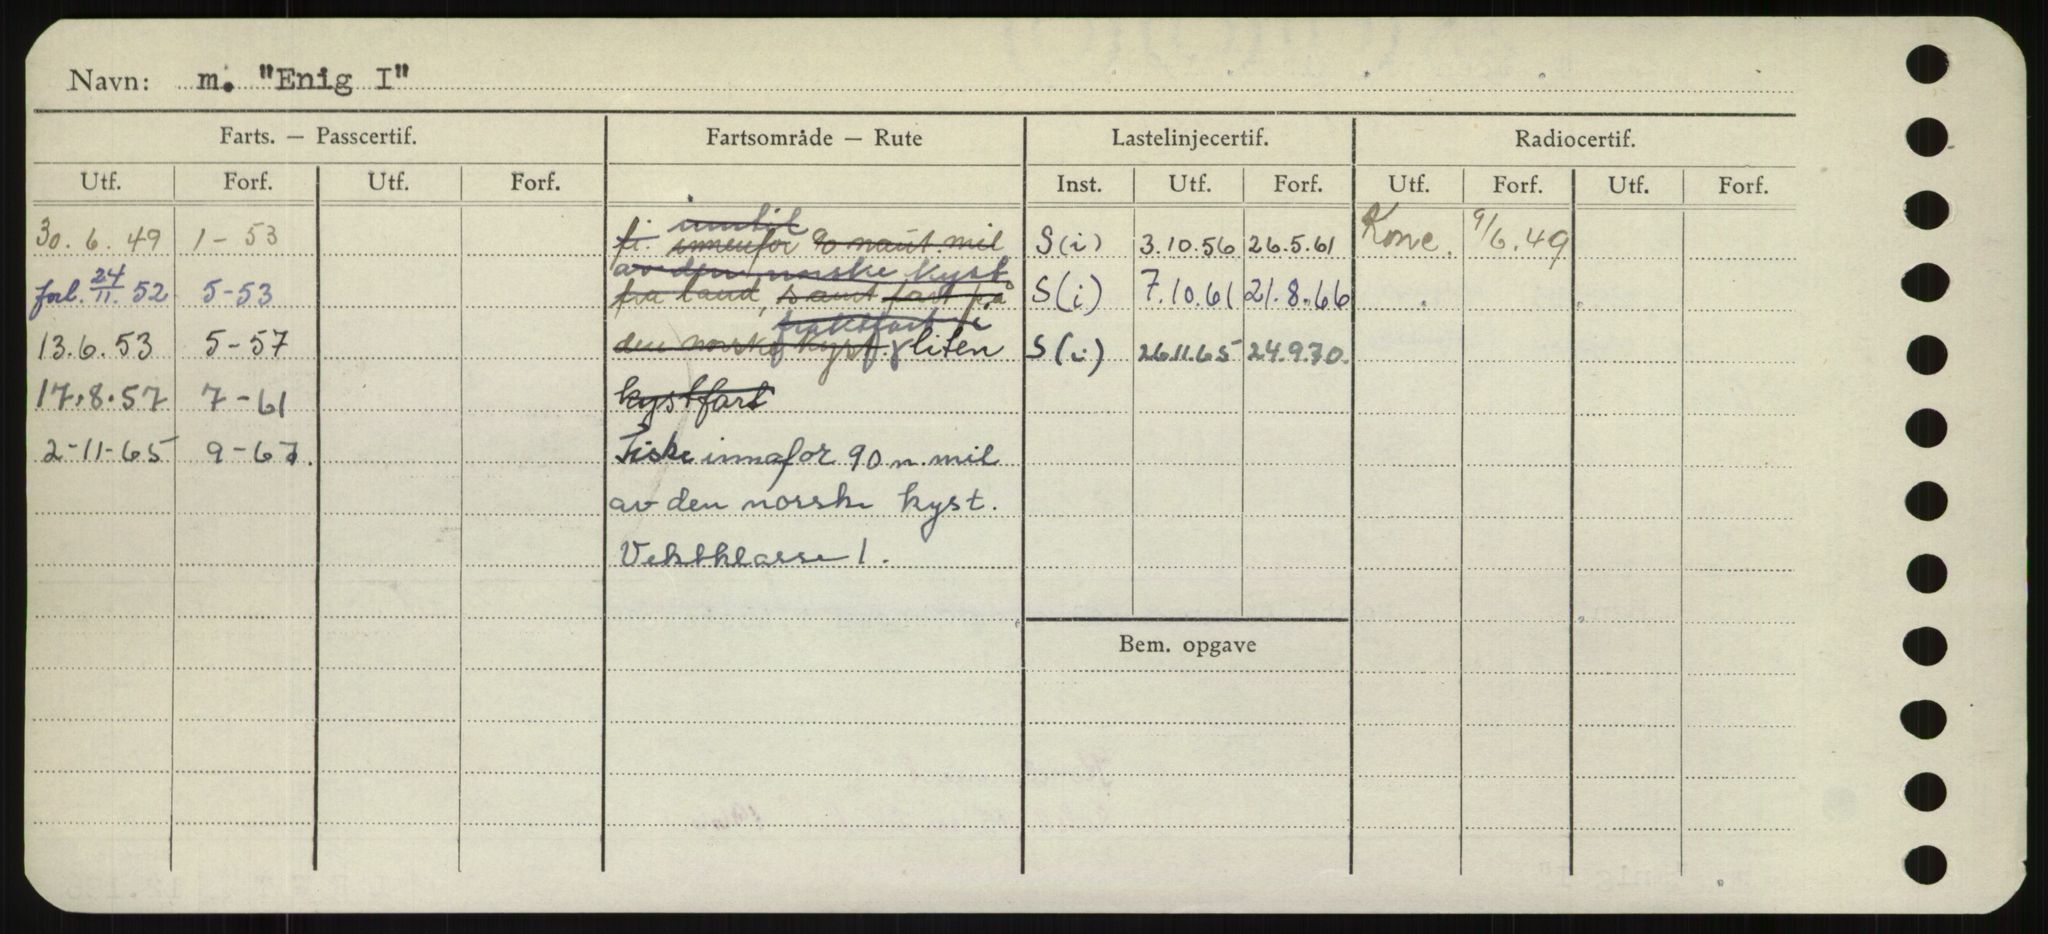 Navn: m. "Enig I"
Farts. — Passcertif. Fartsområde — Rute Lastelinjecertif. Radiocertif.
Utf. Forf. Utf. Forf. Inst. Utf. Forf. Utf. Forf. Utf. Forf.
inntil
30.6.49 1-53 fi. innenfor 90 naut. mil S(i) 3.10.56 26.5.61 Konc. 9/6.49
av den norske kyst
forl. 24/11. 52 5-53 fra land, samt fart på S(i) 7.10.61 21.8.66
fraktfart i
13.6.53 5-57 den norske kyst. liten S(i) 26.11.65 24.9.70.
17.8.57 7-61 kystfart
2-11-65 9-67. Fiske innafor 90 n. mil
av den norske kyst.
Vektklasse 1.
Bem. opgave